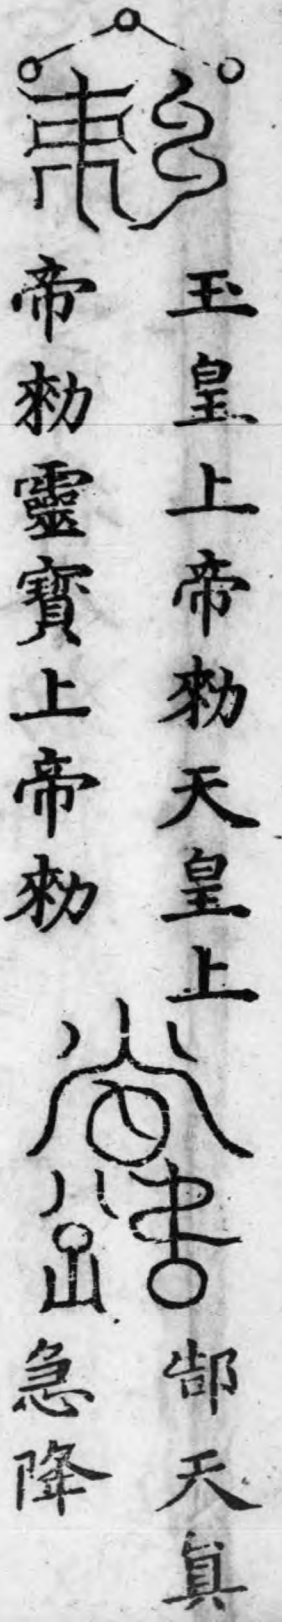 玉皇上帝勑天皇上
帝勑靈寳上帝勑
郆天真
急降